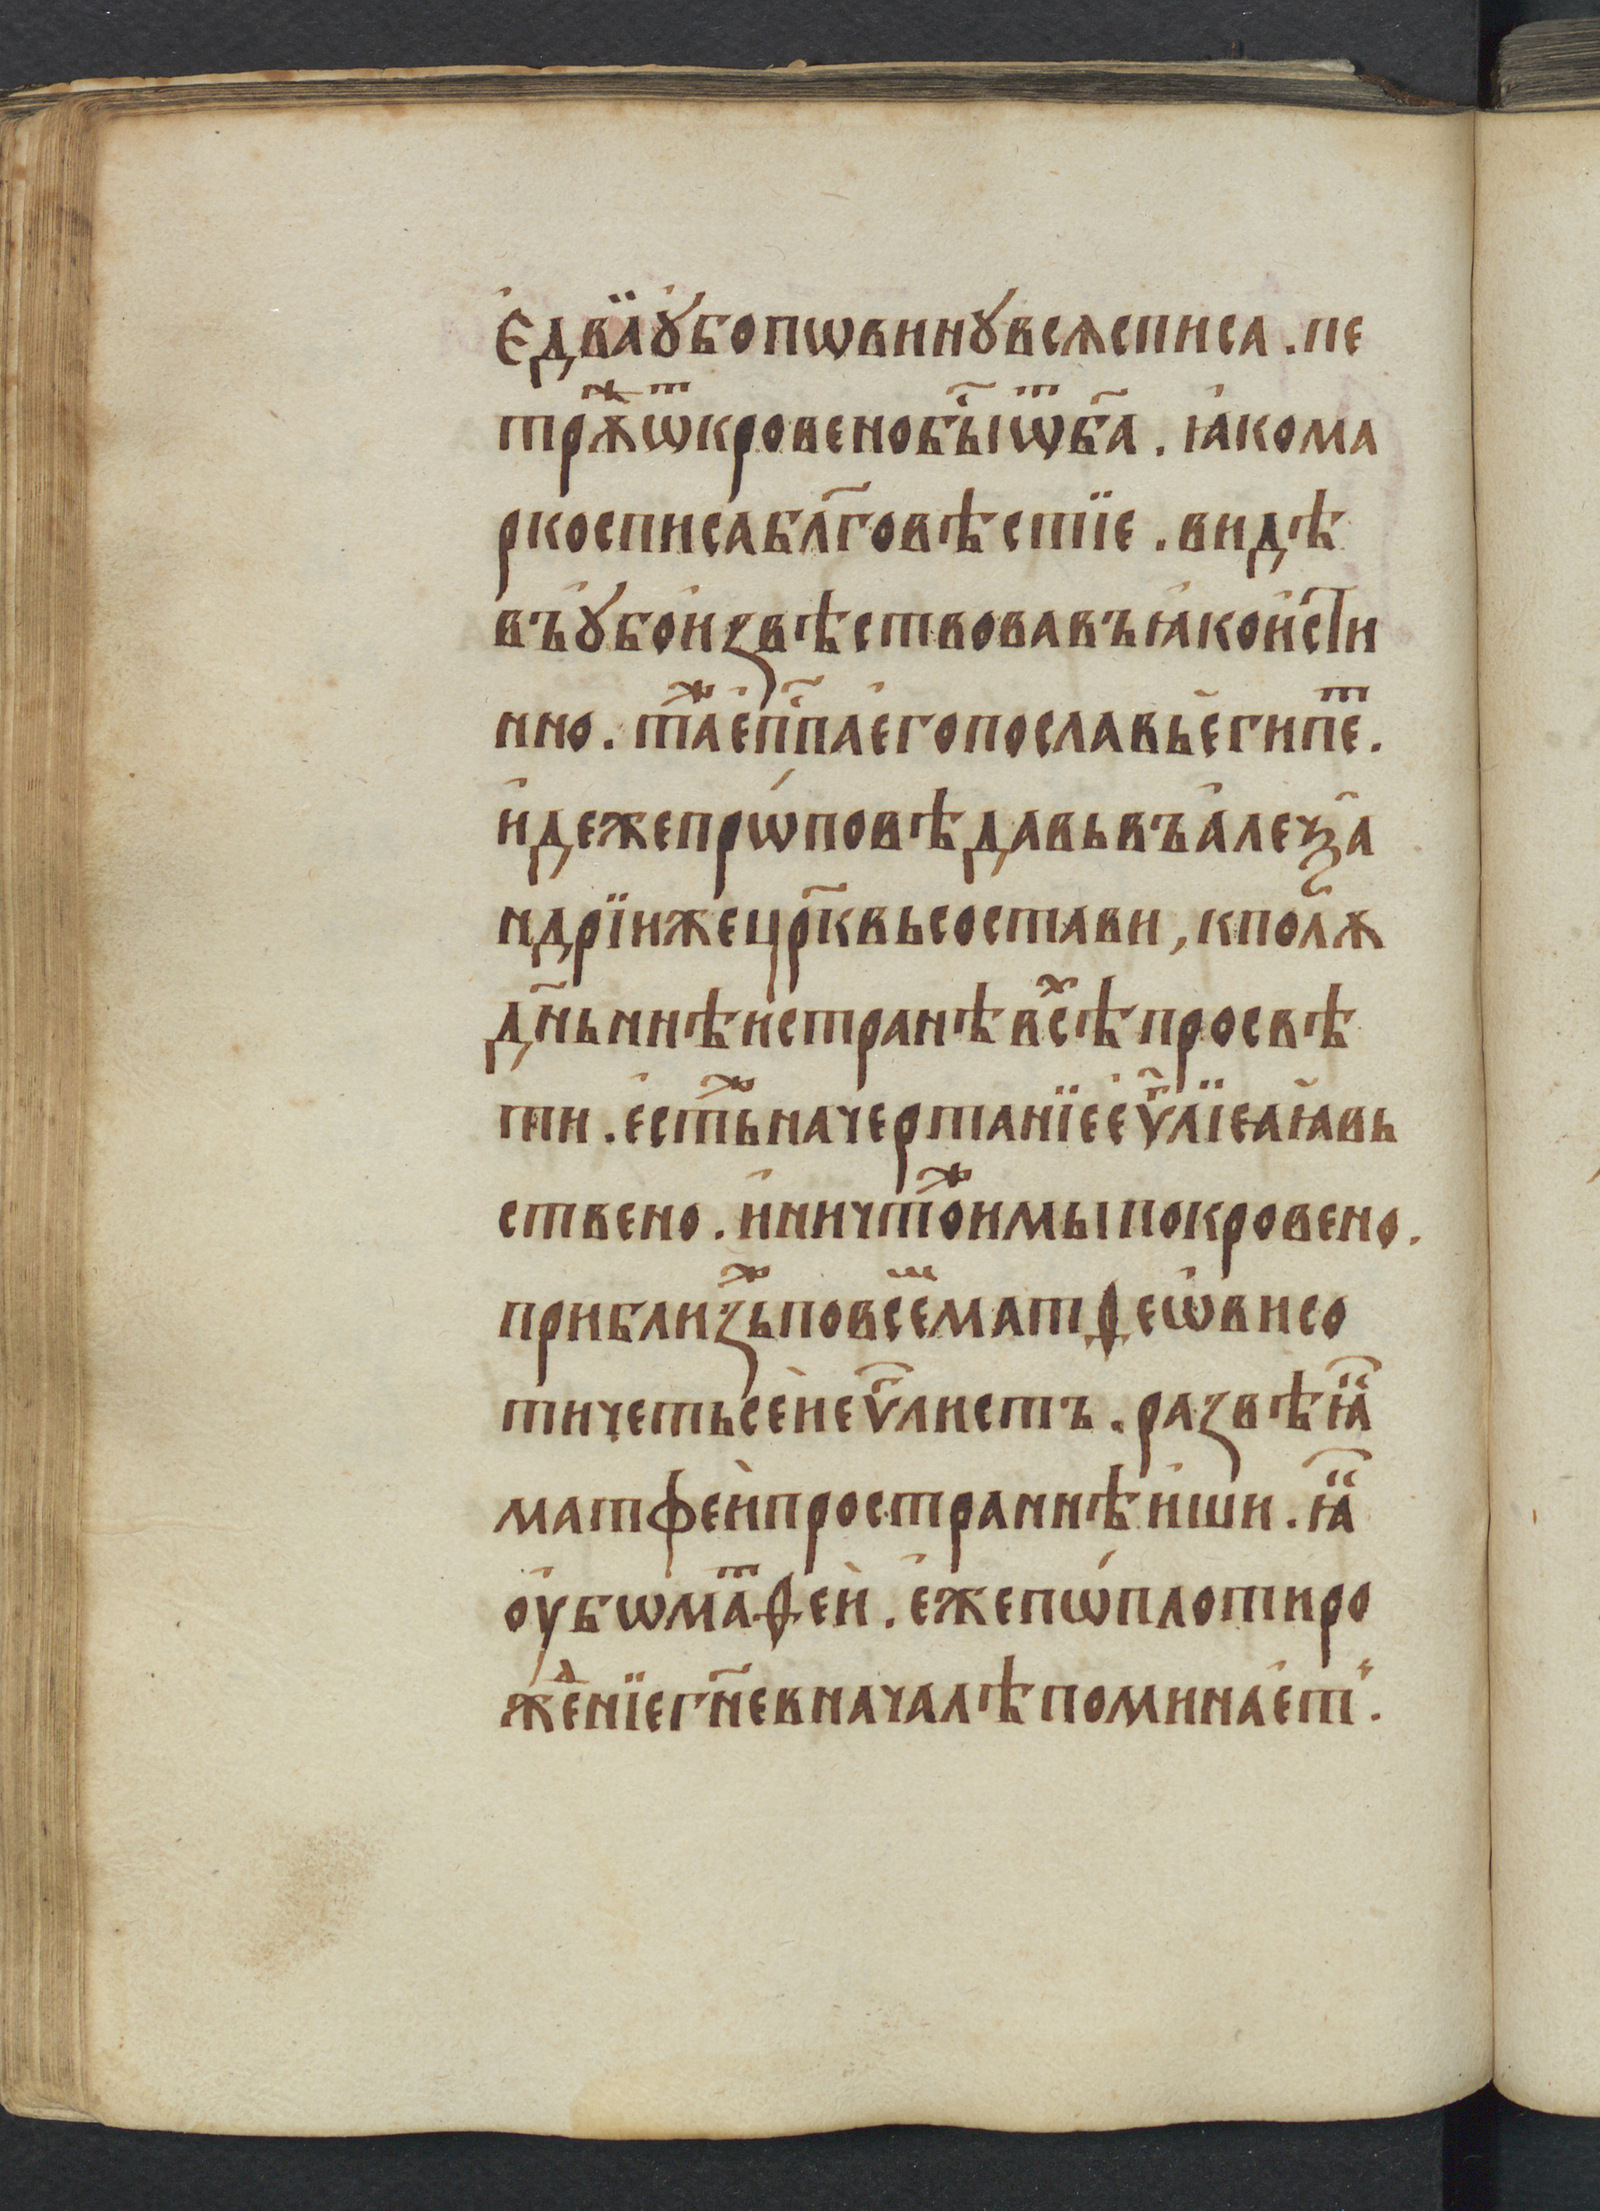 Є҆двӓ ꙋ҆бо пѡвинꙋвсѧ списа . пе
трꙋ̑ж ѿкровено бы̑ ѿ бг҃а . ꙗ҆ко ма
рко списа бл҃говѣстїе . видѣ
въ ꙋ҆бо и҆звѣствовавъ ꙗ҆ко и҆сти
нно . таⷤ є҆пп҃а є҆го посла вь є҆гипеⷮ .
и҆деже прѡ́повѣдавь въ а҆леѯа
ндрїи же цр҃квь состави , к полꙋ
дн҃ьннѣи странѣ всеⷯѣ просвѣ
ти . є҆стьⷤ начертанїе є҆ѵⷢ҇лїе а ꙗ҆вь
ствено . и҆ ничтоⷤ имы покровено .
приблизьⷤ по всеⷨ матфеѡ҆ви со
тичетьсе и҆ є҆ѵ҃листъ . развѣ ꙗ҆̈
матфеи пространнѣи҆ши . ꙗ҆̈
оу҆бѡ маⷮфеи . є҆же пѡ́ плоти ро
жеⷣнїе гн҃е в началѣ помина́ет .